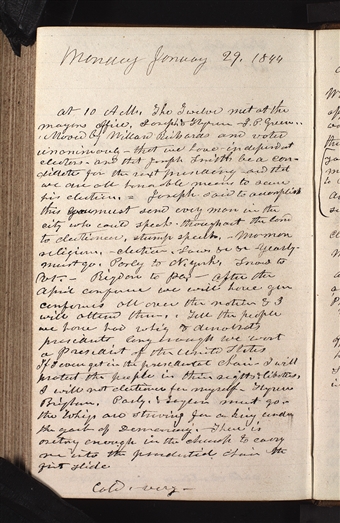 Monday January 29. 1844
At 10 A.M. The Twelve met at the
mayors office, Joseph Hyrum J.P. Green.
Moved by Willard Richards and voted
unanimously — that we have independent
electors and that Joseph Smith be a can-
didate for the next presidency and that
we use all honorable means to secure
his election. = Joseph said to accomplish
this you must send every man in the
city who could speak throughout the land
to electioneer, stump speech, Mormon
religion, election Laws &c &c Yearly
must go. Parly to N. york, Snow to
Rigdon to Pa. after the
April conference we will have gen
conferences all over the nation & I
will attend them. Tell the people
we have had whig & democrats
presidents long enough. we want
a President of the United States.
If I ever get in the presidential chair I will
protect the people in their rights & liberties.
I will not electioneer for myself. Hyrum
Brigham, Parly & Taylor must go
the Whigs are striving for a king under
the garb of Democracy. There is
oratory enough in the church to carry
me into the presidential chair the
first slide
Cold